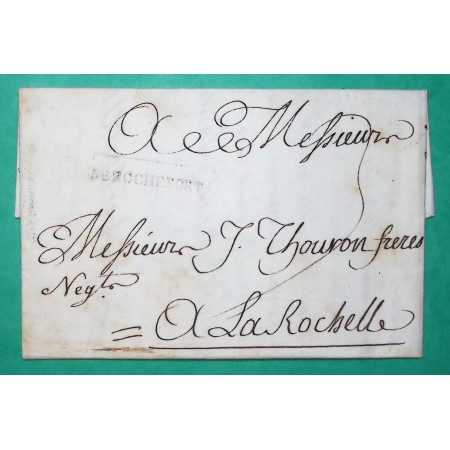 A Messieurs
DE ROCHEFORT
Messieurs J. Thouron freres
Negts
= A La Rochelle